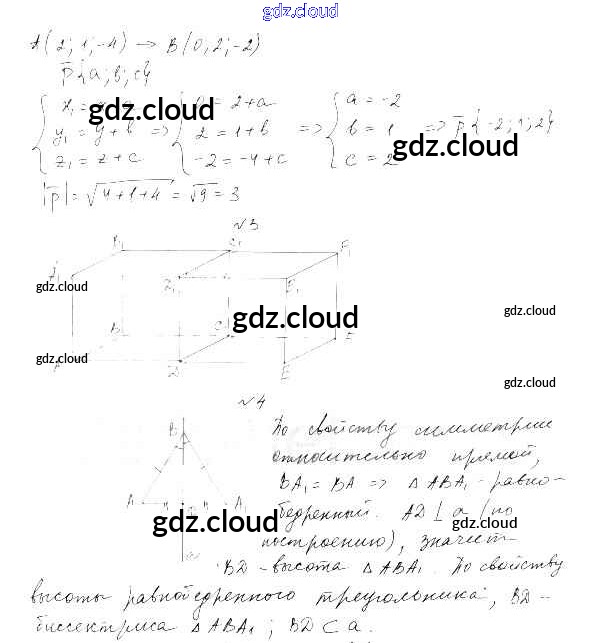 gdz.cloud
A(2; 1; -4) → B(0; 2; -2)
p̄{a; b; c}
y₁ = y + b => 2 = 1 + b => b = 1 => p̄{-2; 1; 2}
z₁ = z + c -2 = -4 + c c = 2
a = -2
= 2 + a
gdz.cloud
gdz.cloud
|p̄| = √4+1+4 = √9 = 3
№3
B₁ C₁ F₁
A₁ D₁ E₁
gdz.cloud
gdz.cloud
gdz.cloud
B C F
gdz.cloud
A D E
gdz.cloud
№4
По свойству симметрии
относительно прямой,
BA₁ = BA => △ABA₁ - равно-
бедренный. AD ⊥ a (по
построению), значит
BD - высота △ABA₁. По свойству
высоты равнобедренного треугольника, BD -
биссектриса △ABA₁; BD ⊂ a.
B
A A₁
gdz.cloud
gdz.cloud